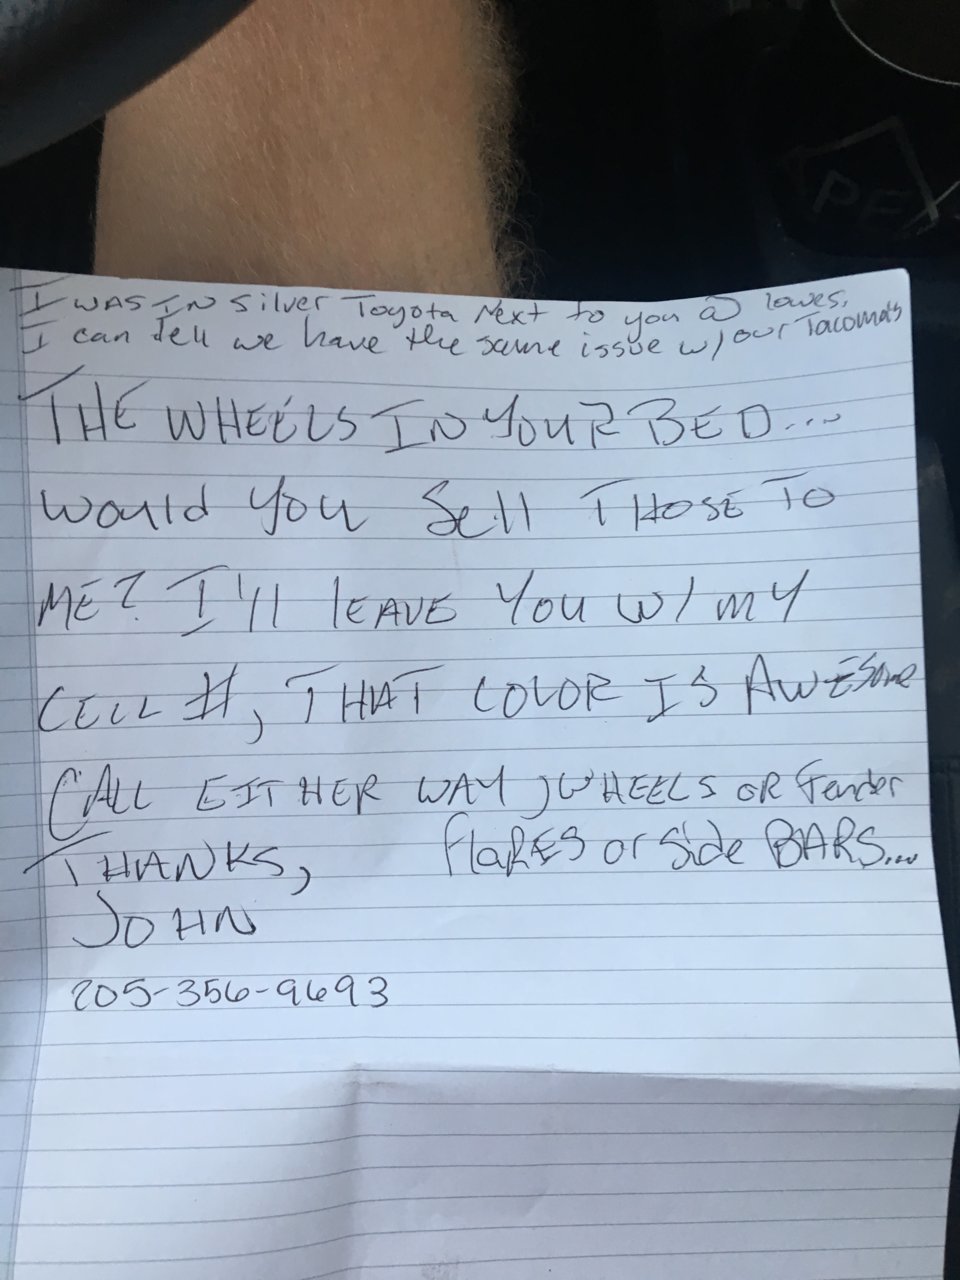 I WAS IN Silver Toyota Next to you @ lowes.
I can Tell we have the same issue w/ our Tacoma's
THE WHEELS IN YOUR BED...
Would You Sell THOSE TO
ME? I'll LEAVE YOU W/ MY
CELL #, THAT COLOR IS AWESome
CALL EITHER WAY, WHEELS OR Fender
THANKS, flaRES or Side BARS...
JOHN
205-356-9693